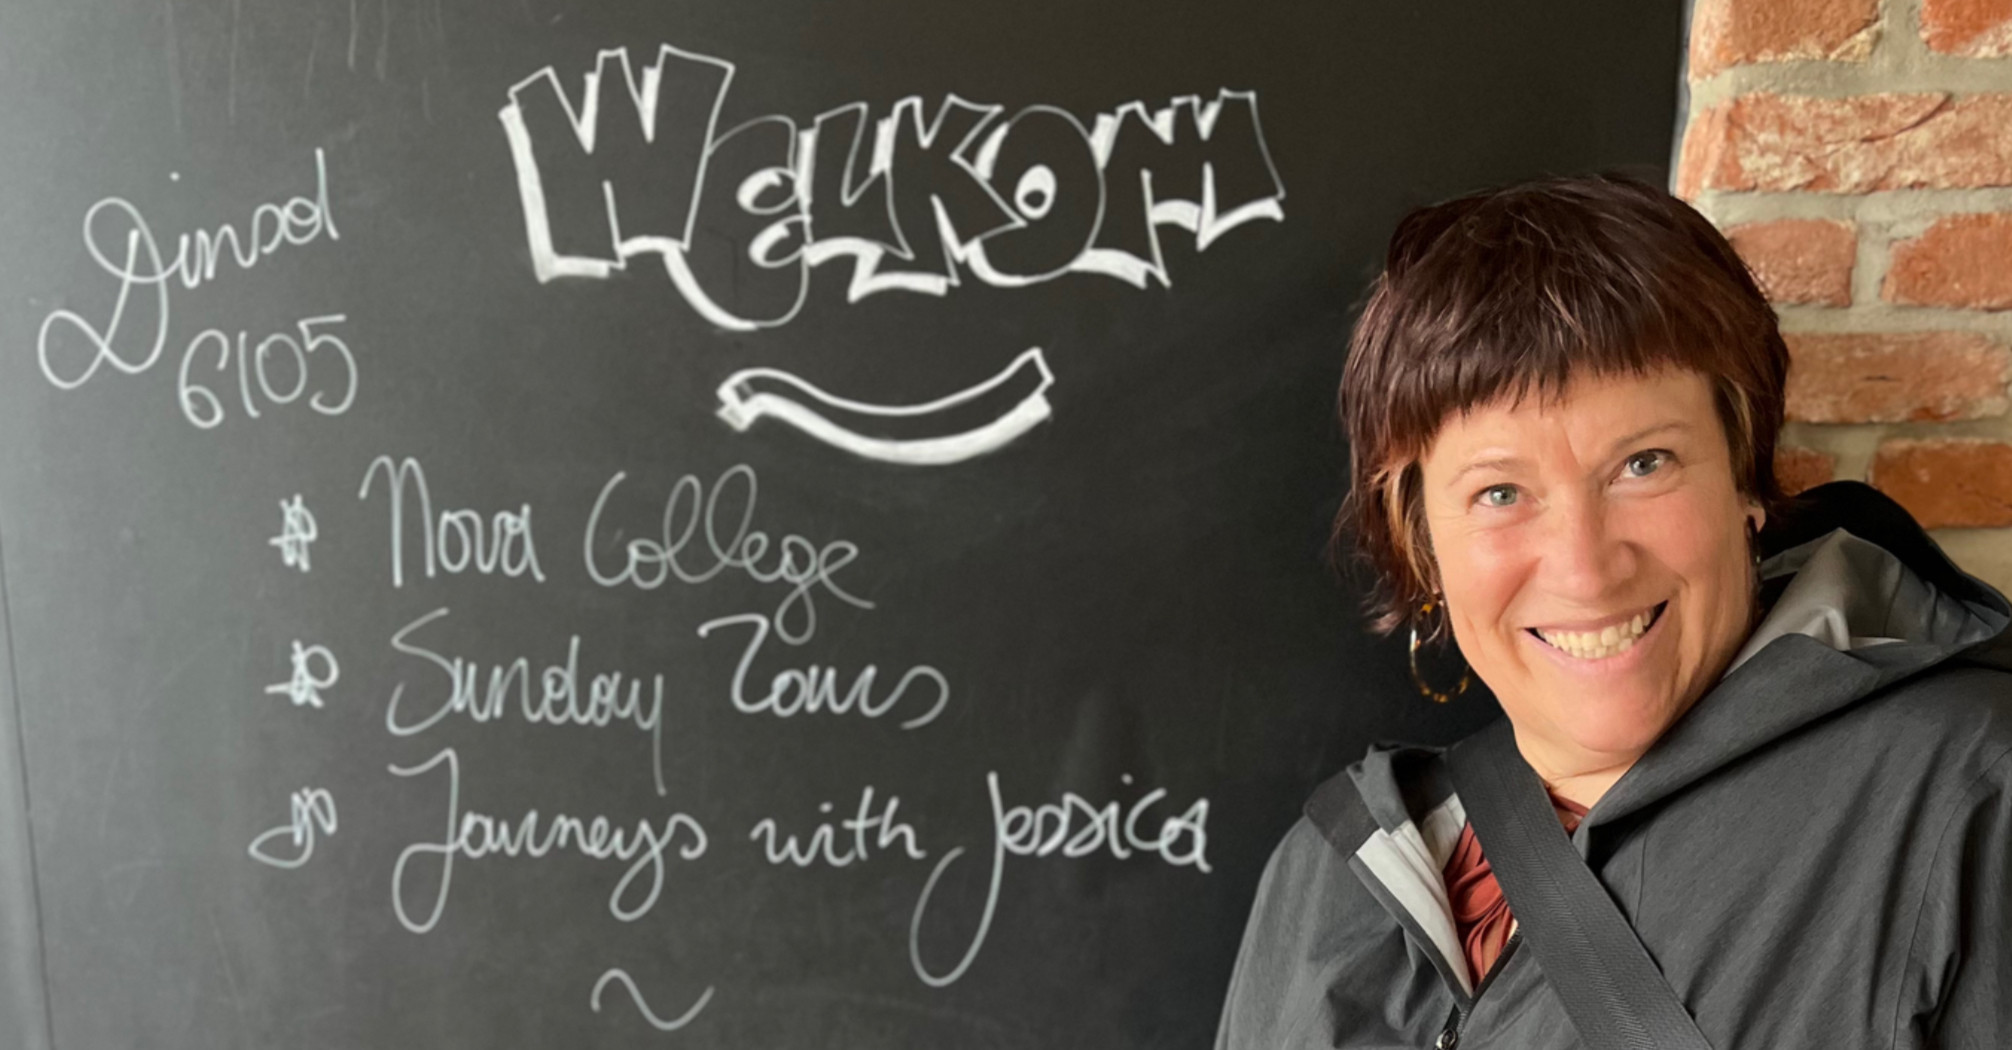 Welkom
Dinsd
6/05
Nova College
Sunday Tours
Journeys with Jessica